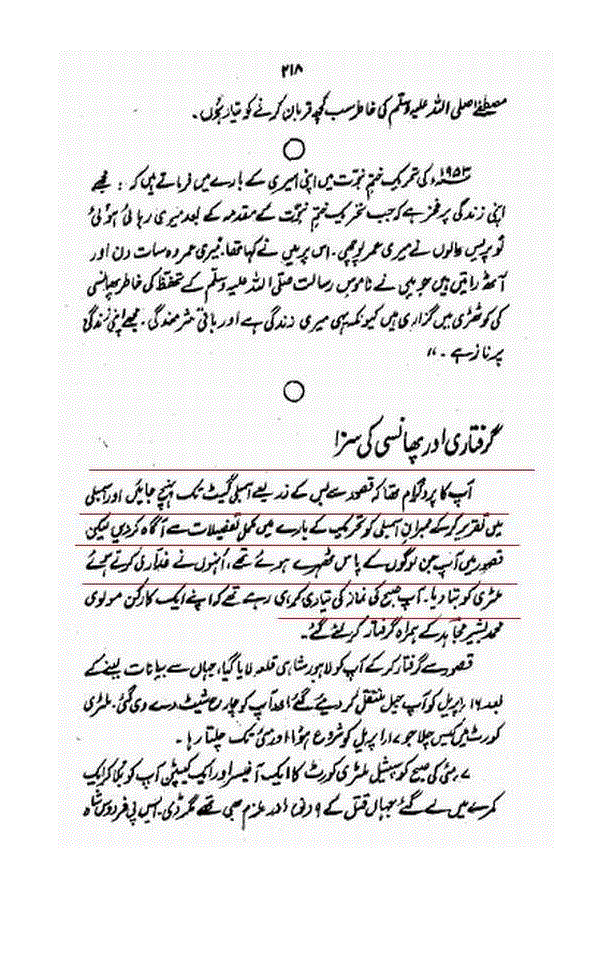 ۲۱۸
مصطفےٰ صلی اللہ علیہ وسلم کی خاطر سب کچھ قربان کرنے کو تیار ہوں۔
۱۹۵۳ء کی تحریک ختم نبوت میں اپنی اسیری کے بارے میں فرماتے ہیں کہ : مجھے
اپنی زندگی پر فخر ہے کہ جب تحریک ختم نبوت کے مقدمہ کے بعد میری رہائی ہوئی
تو پریس والوں نے میری عمر پوچھی۔ اس پر میں نے کہا تھا۔ میری عمر وہ سات دن اور
آٹھ راتیں ہیں جو میں نے ناموس رسالت صلی اللہ علیہ وسلم کے تحفظ کی خاطر پھانسی
کی کوٹھڑی میں گزاری ہیں کیونکہ یہی میری زندگی ہے اور باقی شرمندگی۔ مجھے اپنی زندگی
پر ناز ہے۔"
گرفتاری اور پھانسی کی سزا
آپ کا پروگرام تھا کہ قصور سے بس کے ذریعے اسمبلی گیٹ تک پہنچ جائیں اور اسمبلی
میں تقریر کر کے ممبران اسمبلی کو تحریک کے بارے میں مکمل تفصیلات سے آگاہ کر دیں لیکن
قصور میں آپ جن لوگوں کے پاس ٹھہرے ہوئے تھے، اُنہوں نے غداری کرتے ہوئے
ملٹری کو بتا دیا۔ آپ صبح کی نماز کی تیاری کر ہی رہے تھے کہ اپنے ایک کارکن مولوی
محمد بشیر مجاہد کے ہمراہ گرفتار کر لئے گئے۔
قصور سے گرفتار کر کے آپ کو لاہور شاہی قلعہ لایا گیا، جہاں سے بیانات لینے کے
بعد ۱۶ اپریل کو آپ جیل منتقل کر دیئے گئے اور آپ کو چارج شیٹ دے دی گئی۔ ملٹری
کورٹ میں کیس چلا جو ۱۷ اپریل کو شروع ہوا اور مئی تک چلتا رہا۔
۷ مئی کی صبح کو سپیشل ملٹری کورٹ کا ایک آفیسر اور ایک کیپٹن آپ کو بلا کر ایک
کمرے میں لے گئے جہاں قتل کے ۹ اور ملزم بھی تھے مگر ڈی۔ ایس پی فردوس شاہ